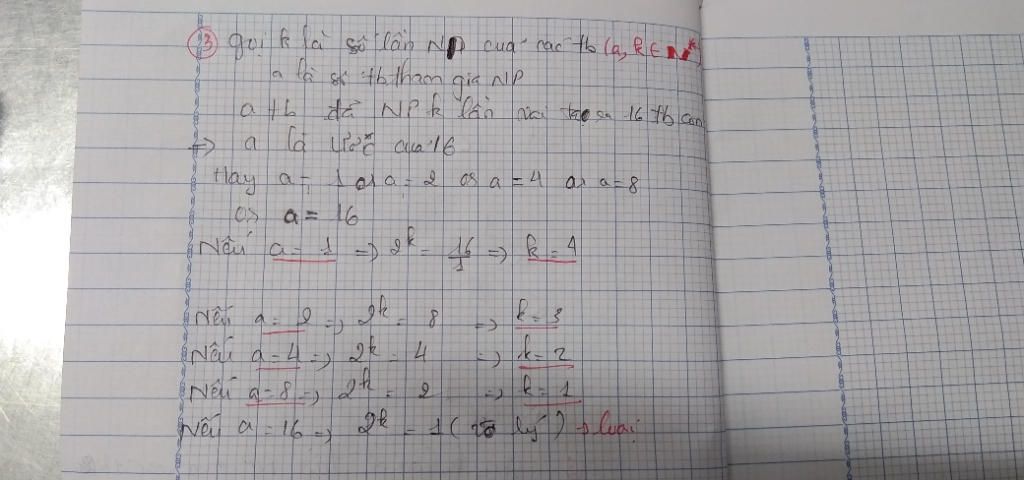 ③ gọi k là số lần NP của các tb (a, k ∈ N*)
a là số tb tham gia NP
a tb đề NP k lần tạo ra 16 tb con
=> a là ước của 16
Hay a = 1 or a = 2 or a = 4 or a = 8
or a = 16
Nếu a = 1 => 2^k = 16/1 => k = 4
Nếu a = 2 => 2^k = 8 => k = 3
Nếu a = 4 => 2^k = 4 => k = 2
Nếu a = 8 => 2^k = 2 => k = 1
Nếu a = 16 => 2^k = 1 (vô lý) → loại